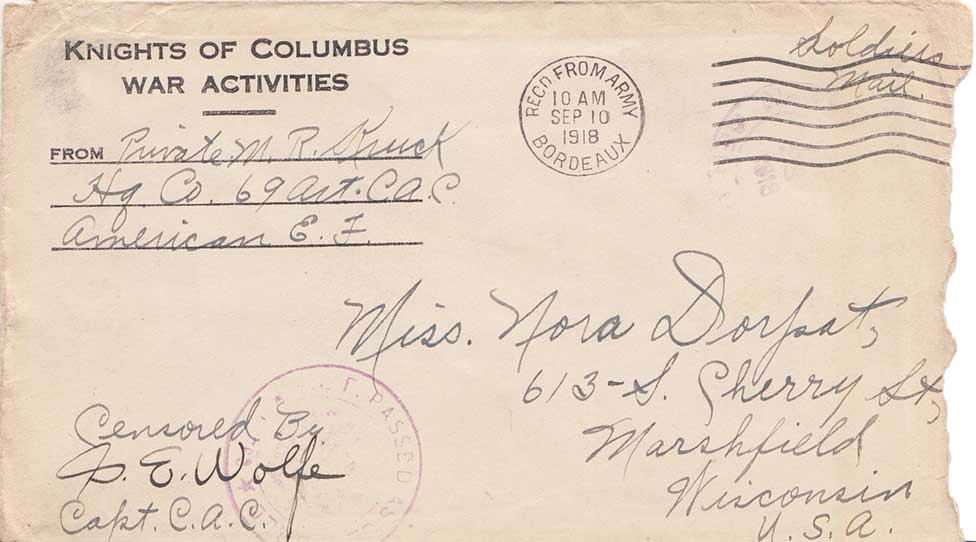 KNIGHTS OF COLUMBUS
WAR ACTIVITIES
FROM Private M. R. Kruck
Hq. Co. 69 Art. C.A.C.
American E. F.
REC'D FROM ARMY
10 AM
SEP 10
1918
BORDEAUX
Soldiers
Mail.
Miss. Nora Dorpat,
613-S. Cherry St,
Marshfield
Wisconsin
U.S.A.
Censored By
E. Wolfe
Capt. C.A.C.
PASSED AS